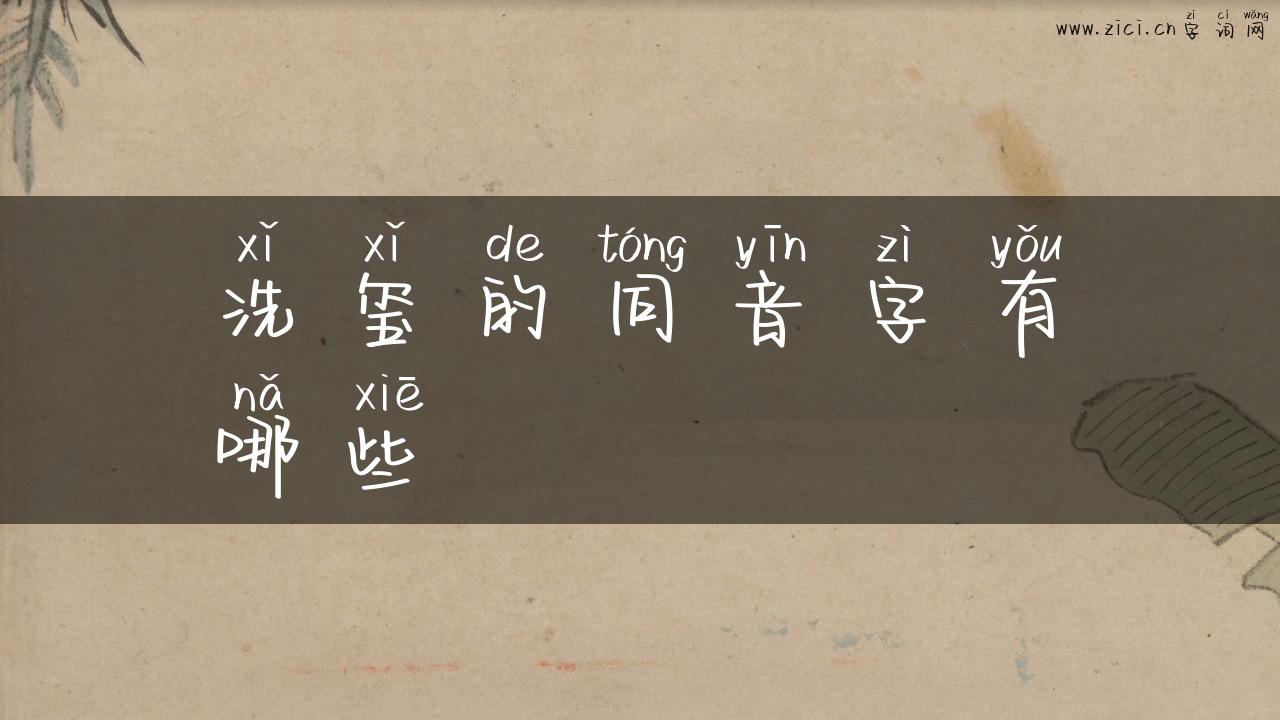 zì cí wǎng
www.zici.cn 字 词 网
xǐ xǐ de tóng yīn zì yǒu
洗 玺 的 同 音 字 有
nǎ xiē
哪 些